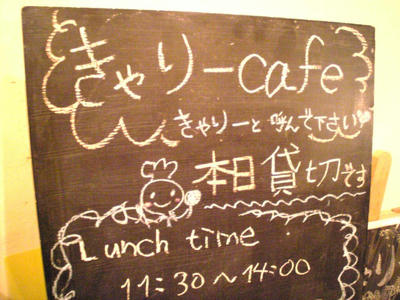 きゃりーcafe
きゃりーと呼んで下さい
本日貸切です
Lunch time
11:30〜14:00